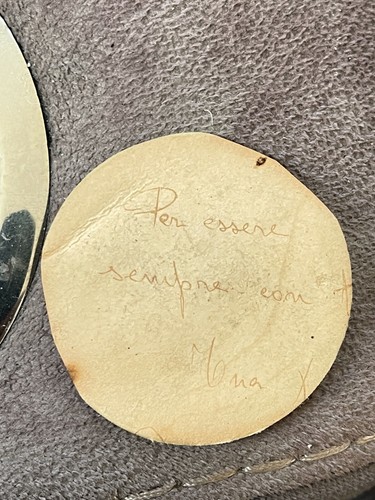 Per essere
sempre con t